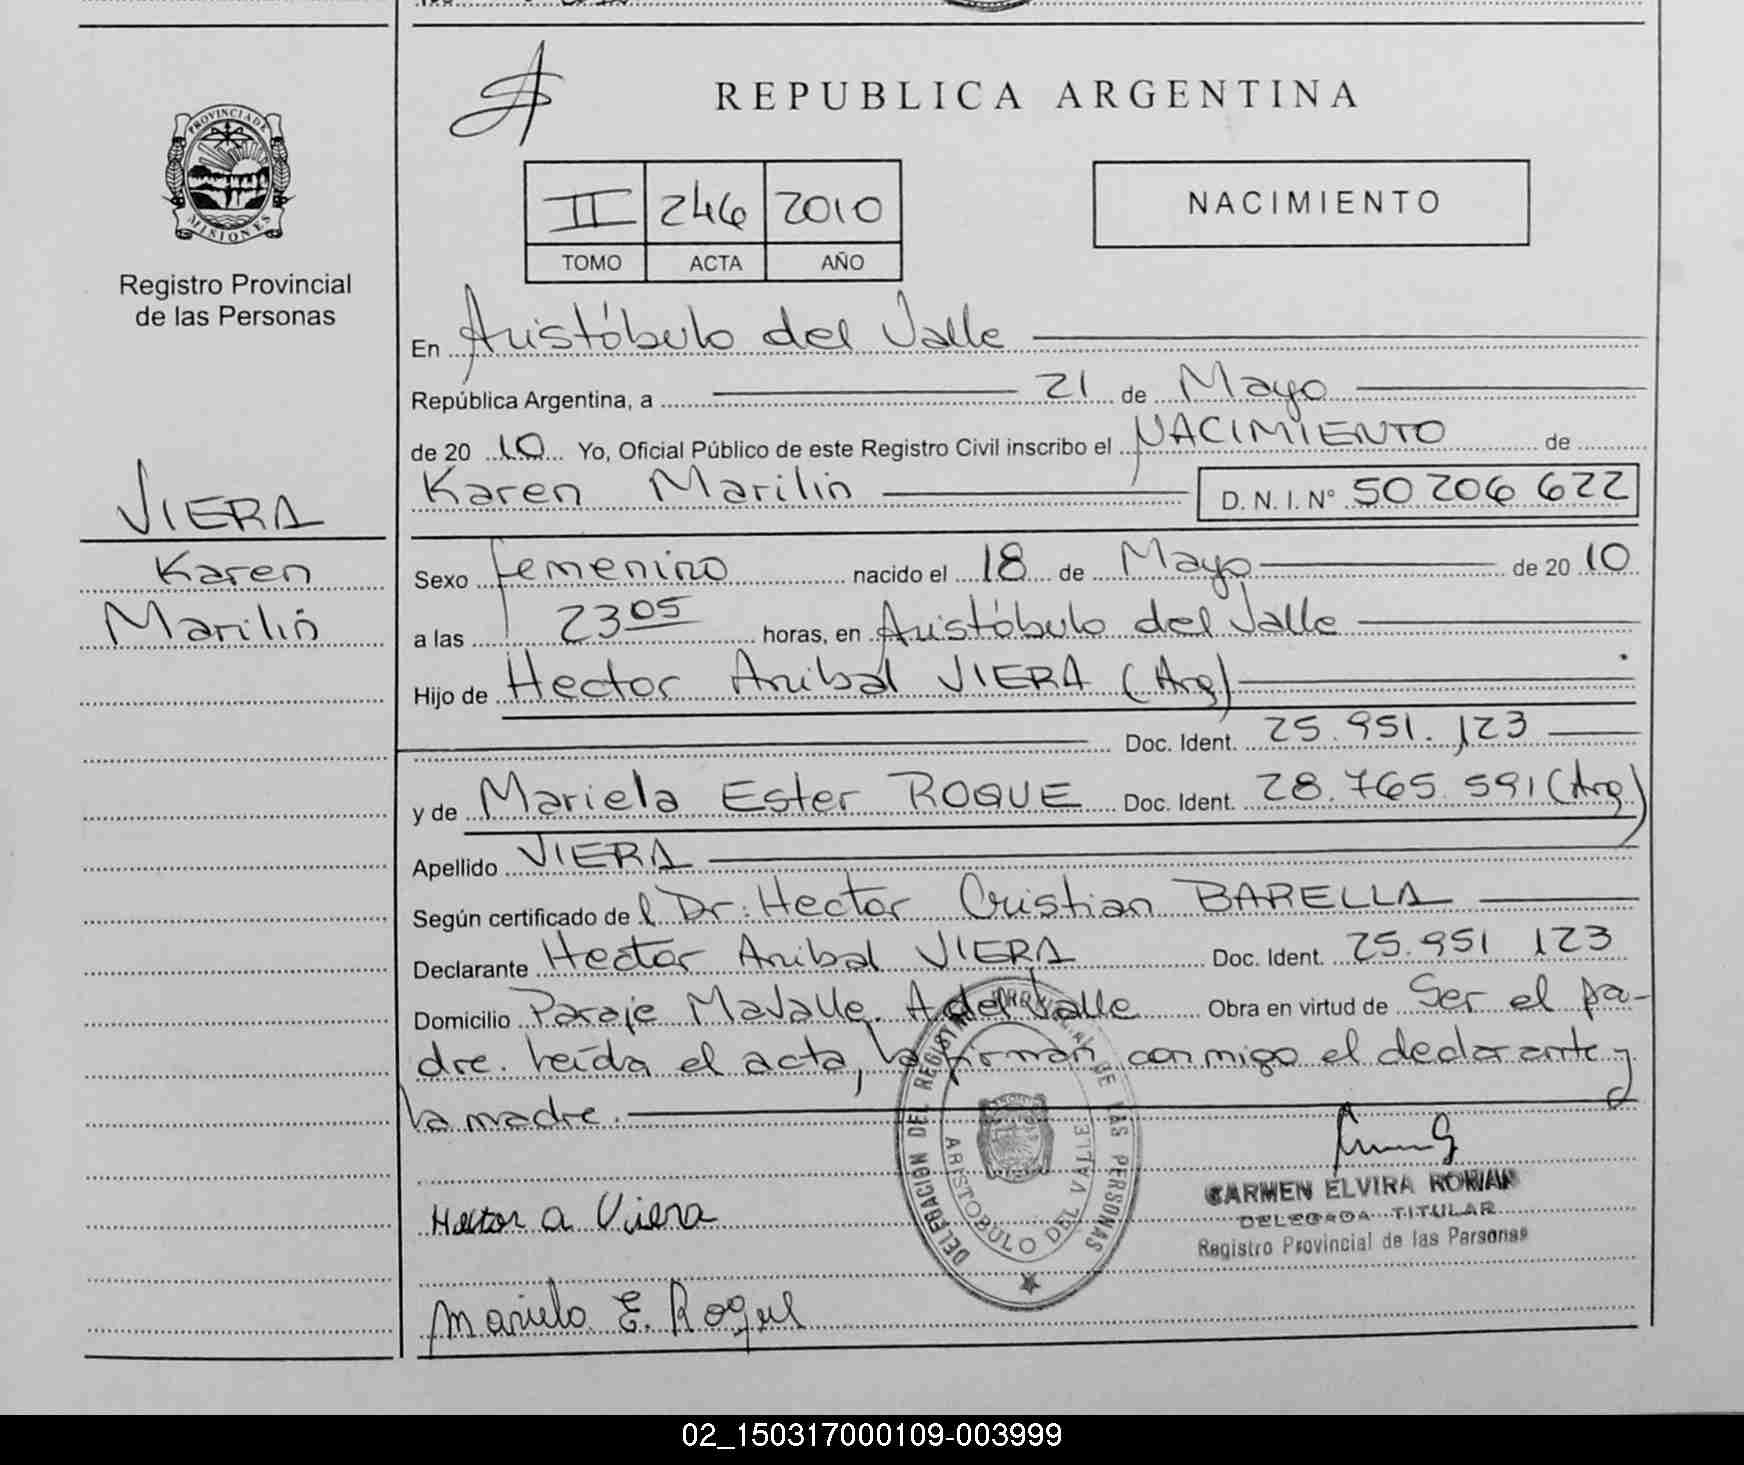 REPUBLICA ARGENTINA
PROVINCIA DE
MISIONES
Registro Provincial
de las Personas
II 246 2010
TOMO ACTA AÑO
NACIMIENTO
VIERA
Karen
Marilin
En Aristóbulo del Valle
República Argentina, a 21 de Mayo
de 20 10 Yo, Oficial Público de este Registro Civil inscribo el NACIMIENTO de
Karen Marilin D. N. I. Nº 50 206 622
Sexo femenino nacido el 18 de Mayo de 20 10
a las 23 05 horas, en Aristóbulo del Valle
Hijo de Hector Anibal VIERA (Arg)
Doc. Ident. 25.951.123
y de Mariela Ester ROQUE Doc. Ident. 28.765.591 (Arg)
Apellido VIERA
Según certificado de l Dr. Hector Cristian BARELLA
Declarante Hector Anibal VIERA Doc. Ident. 25.951 123
Domicilio Paraje MaValle. A del Valle Obra en virtud de Ser el pa-
dre. Leída el acta, la firman conmigo el declarante y
la madre.
DELEGACION DEL REGISTRO PROVINCIAL DE LAS PERSONAS
ARISTOBULO DEL VALLE
CARMEN ELVIRA ROMAN
DELEGADA TITULAR
Registro Provincial de las Personas
Hector a Viera
Mariela E. Roque
02_150317000109-003999